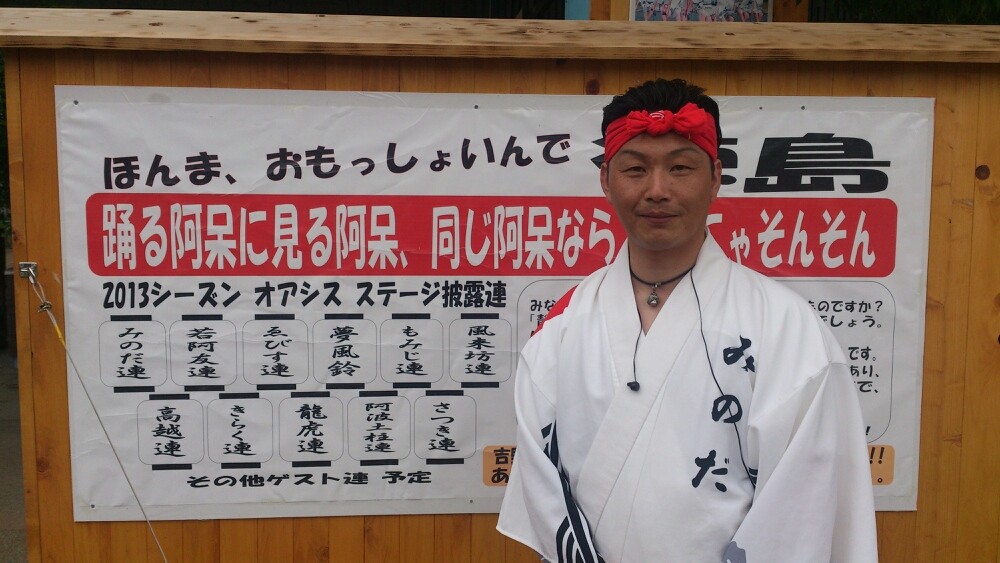 ほんま、おもっしょいんで 島
踊る阿呆に見る阿呆、同じ阿呆なら ゃそんそん
2013シーズン オアシス ステージ披露連
みのだ連 若阿友連 ゑびす連 夢風鈴 もみじ連 風来坊連
高越連 きらく連 龍虎連 阿波土柱連 さつき連
その他ゲスト連 予定
みな ものですか?
でしょう。
です。
あり、
で、
!
吉 !!
あ 。
みのだ